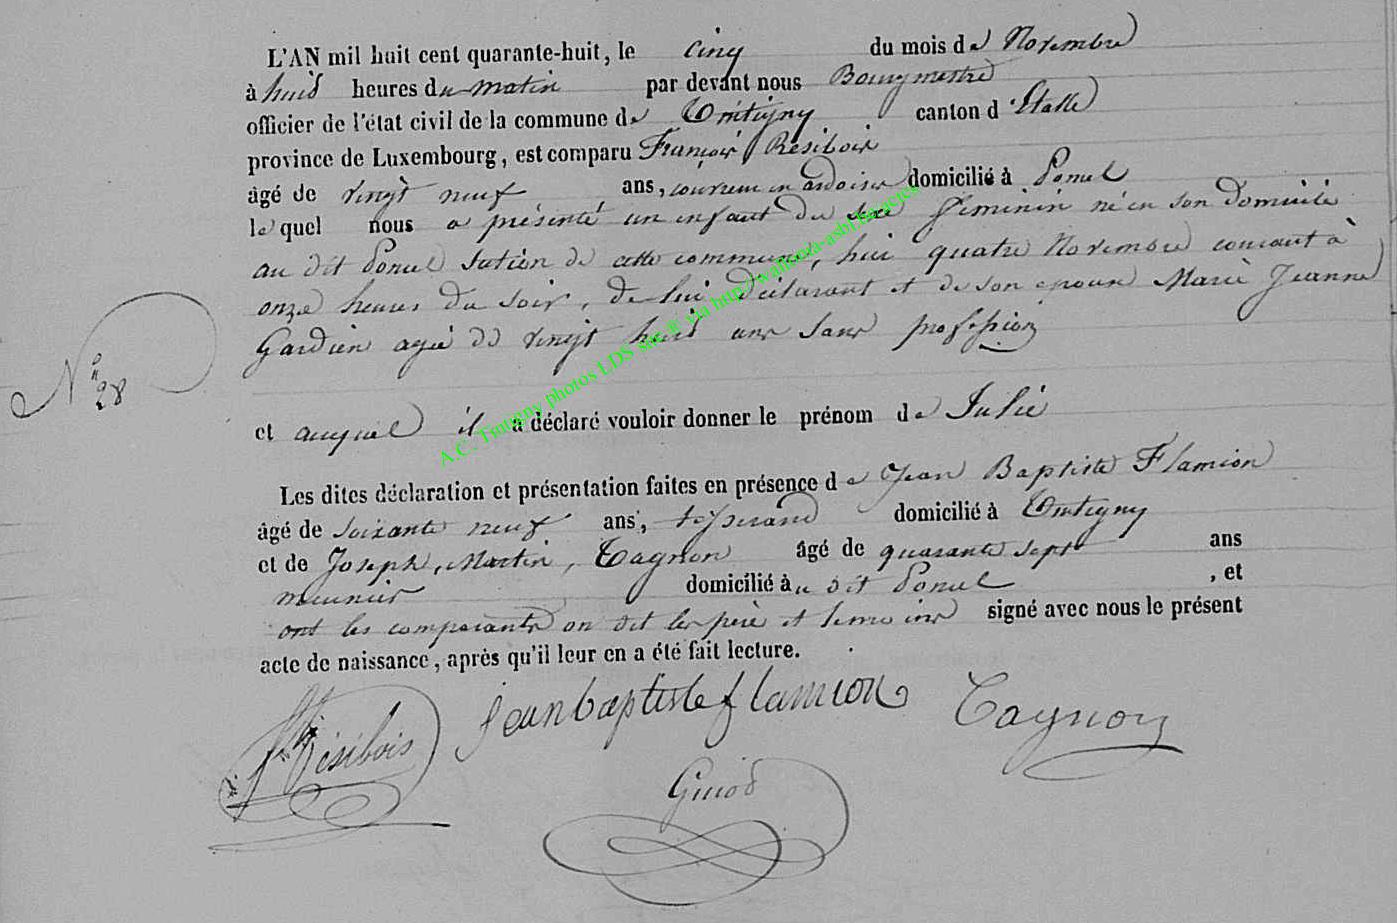 L'AN mil huit cent quarante-huit, le cinq du mois de Novembre
à huit heures du matin par devant nous Bourgmestre
officier de l'état civil de la commune de Tintigny canton d'Etalle
province de Luxembourg, est comparu François Résibois
âgé de vingt neuf ans, couvreur en ardoises domicilié à Poncel
lequel nous a présenté un enfant du sexe féminin né en son domicile
au dit Poncel section de cette commune, hier quatre Novembre courant à
onze heures du soir, de lui déclarant et de son épouse Marie Jeanne
Gardien agée de vingt huit ans sans profession
N° 28
et auquel il a déclaré vouloir donner le prénom de Julie
Les dites déclaration et présentation faites en présence de Jean Baptiste Flamion
âgé de soixante neuf ans, tisserand domicilié à Tintigny
et de Joseph, Martin, Tagnon âgé de quarante sept ans
meunier domicilié au dit Poncel, et
ont les comparants on dit les père et temoins signé avec nous le présent
acte de naissance, après qu'il leur en a été fait lecture.
Résibois Jean baptiste flamion Tagnon
Guiot
A.C. Tintigny photos LDS via http://wallonia-asbl.be/actes